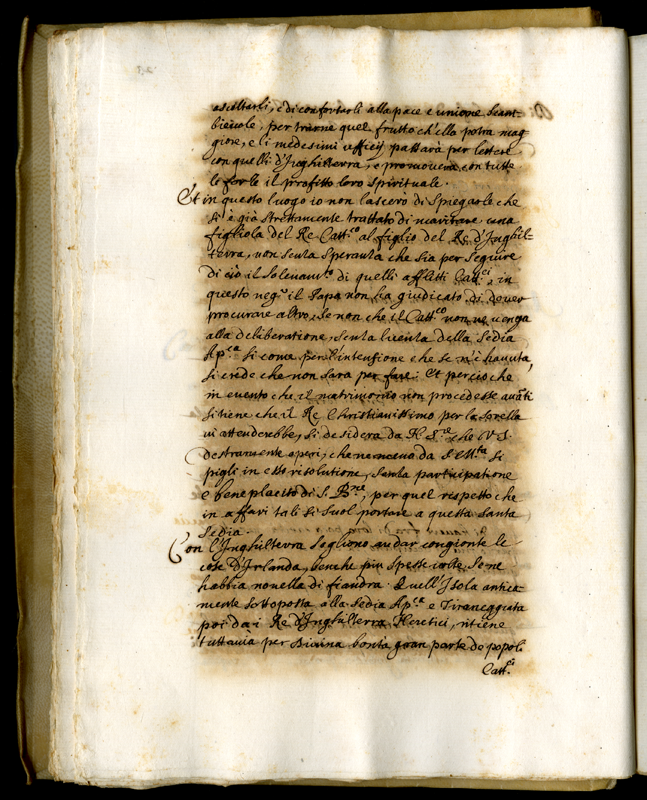 ascoltarli, e di confortarli alla pace e unione scam-
bievole, per trarne quel frutto ch'ella potrà mag
giore, e li medesimi ufficij passarà per lettere
con quelli d'Inghilterra, e promoverà con tutte
le forze il profitto loro spirituale.
Et in questo luogo io non lascerò di spiegarle che
si è già strettamente trattato di maritare una
figliola del Re Catt.co al figlio del Re d'Inghil-
terra, non senza speranza che sia per seguire
di ciò il solevam.to di quelli afflitti Catt.ci, in
questo neg.o il Papa non ha giudicato di dover
procurare altro, se non che il Catt.co non ne venga
alla deliberatione, senza licenza della Sedia
Ap.ca si come per l'intenzione che se n'è havuta,
si crede che non sarà per fare. Et perciò che
in evento che il matrimonio non procedesse avāti
si tiene che il Re Christianissimo per la sorella
vi attenderebbe, si desidera da N. S.re che V.S.
destramente operi, che ne meno da S. M.tà si
pigli in esso risolutione, senza participatione
e beneplacito di S. B.ne, per quel rispetto che
in affari tali si suol portare a questa santa
Sedia.
Con l'Inghilterra sogliono andar congionte le
cose d'Irlanda, benche più spesse volte se ne
habbia novella di fiandra. Quell'Isola antica-
mente sottoposta alla Sedia Ap.ca e Tiraneggiata
poi da i Re d'Inghilterra Heretici, ritiene
tuttavia per Divina bontà gran parte de popoli
Catt.ci